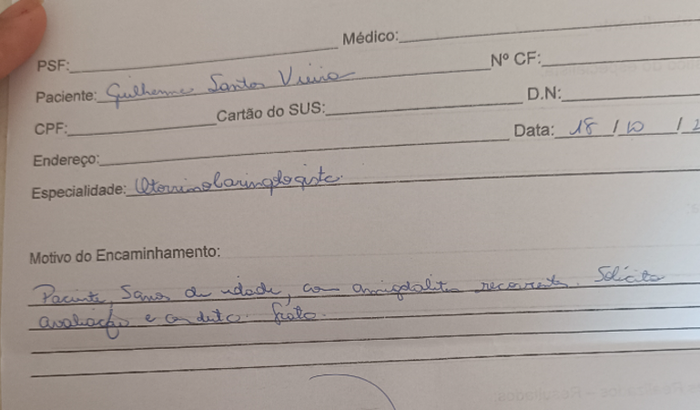 Médico:
PSF:
Nº CF:
Paciente: Guilherme Santos Vieira
Cartão do SUS:
D.N:
CPF:
Data: 18 / 10 / 2
Endereço:
Especialidade: Otorrinolaringologista
Motivo do Encaminhamento:
Paciente, 5 anos de idade, com amigdalites recorrentes. Solicito
avaliação e conduta. Grato.